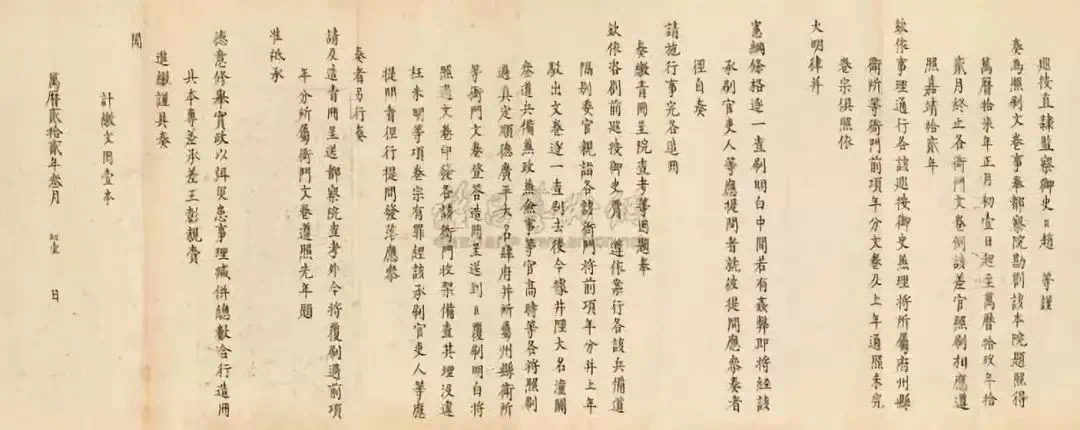 巡按直隸監察御史臣趙 等謹
奏為照刷文卷事奉都察院勘劄該本院題照得
萬曆拾柒年正月初壹日起至萬曆拾玖年拾
貳月終止各衙門文卷例該差官照刷相應遵
照嘉靖拾貳年
欽依事理通行各該巡按御史無理將所屬府州縣
衛所等衙門前項年分文卷及上年通照未完
卷宗俱照依
大明律并
憲綱條格逐一查刷明白中間若有姦弊即將經該
承刷官吏人等應提問者就彼提問應參奏者
徑自奏
請施行事完各造冊
奏繳青冊呈院查考等因題奉
欽依咨劄前巡按御史賈 遵依票行各該兵備道
隔別委官親詣各該衙門將前項年分并上年
駁出文卷逐一查刷去後今據井陘大名潼關
叁道兵備兼政無僉事等官高時等各將照刷
過真定順德廣平大名肆府并所屬州縣衛所
等衙門文卷登答造冊呈送到臣覆刷明白將
照過文卷印發各該衙門收架備查其理沒違
枉未明等項卷宗有罪經該承刷官吏人等應
提問者徑行提問發落應參
奏者另行奏
請及造青冊呈送都察院查考外今將覆刷過前項
年分所屬衙門文卷遵照先年題
准祗承
德意修舉實政以弭災患事理贓併總數合行造冊
具本專差承差王彰親賫
進繳謹具奏
聞
計繳文冊壹本
萬曆貳拾貳年叁月 初壹 日